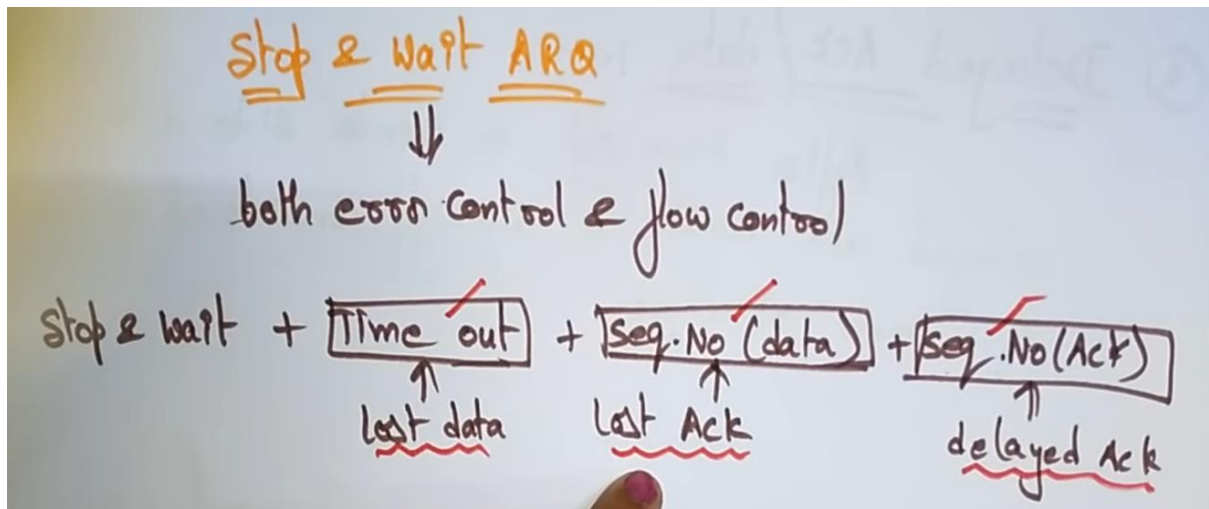 Stop & Wait ARQ
both error control & flow control
Stop & wait + Time out + Seq.No (data) + Seq.No (Ack)
lost data Lost Ack delayed Ack